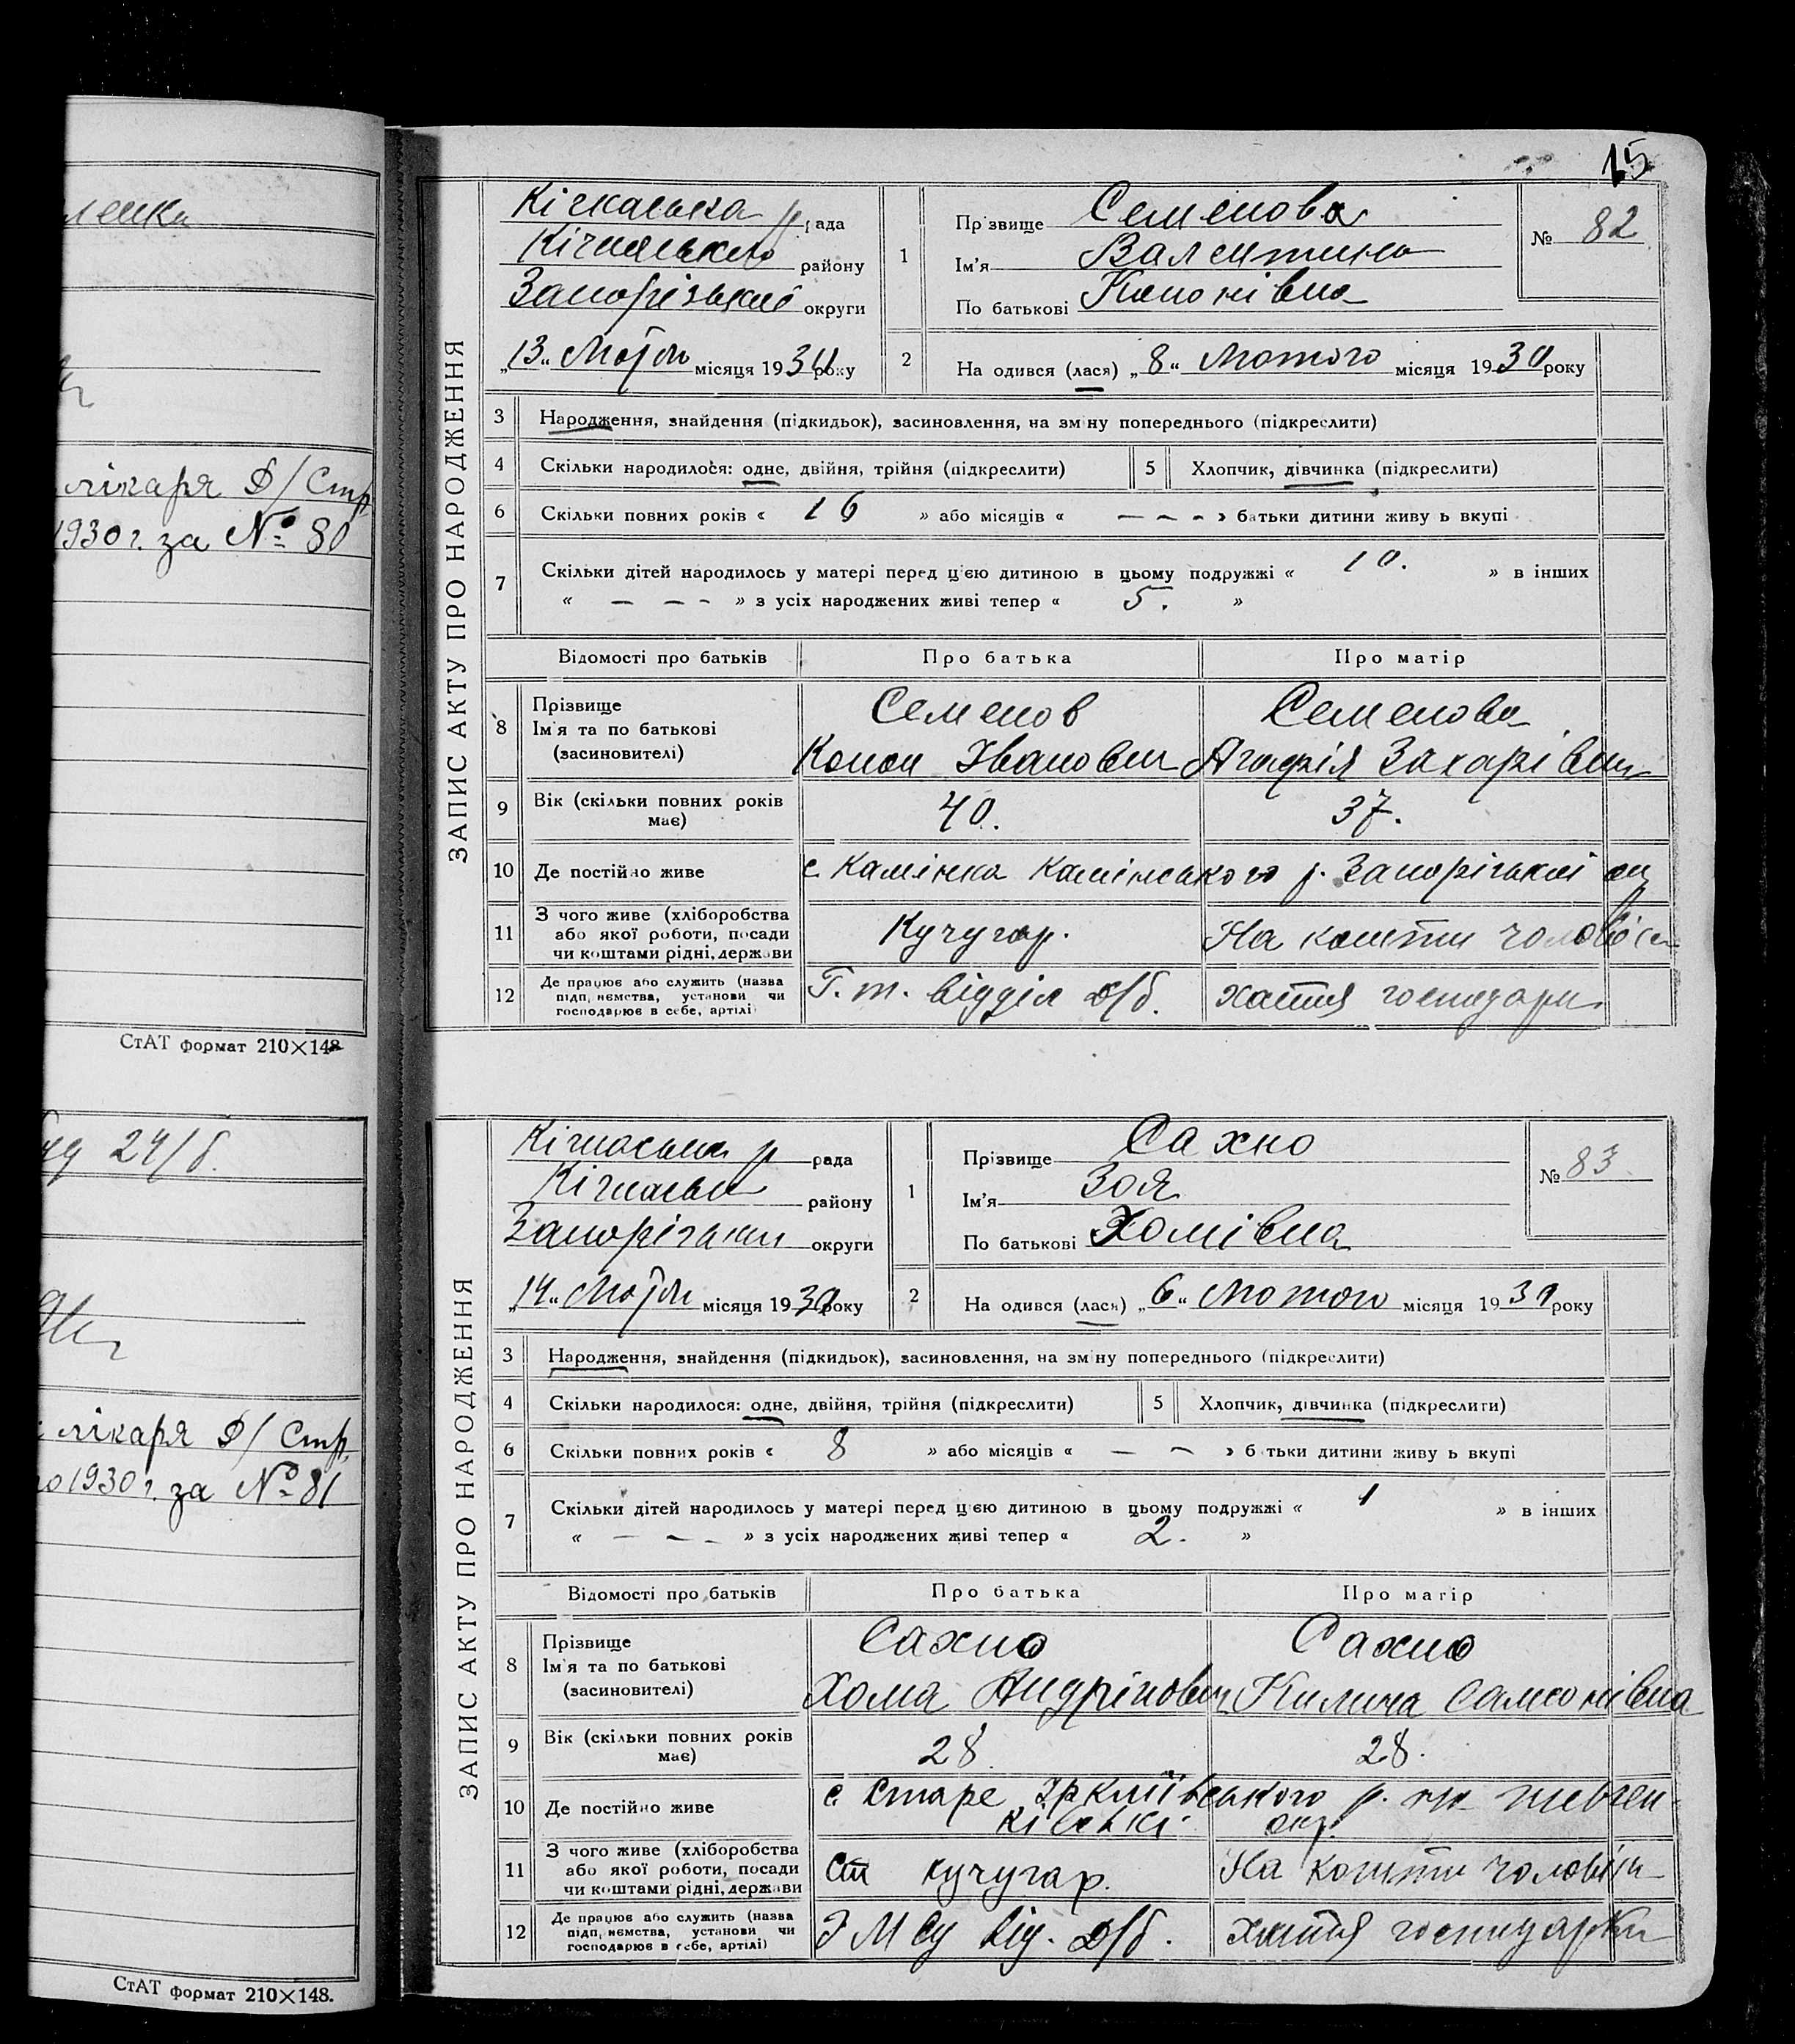 15
ленка
лікаря Д/Стр
1930 г. за № 80
СтАТ формат 210×148
24/б.
лікаря Д/Стр.
1930 г. за № 81
СтАТ формат 210×148.
ЗАПИС АКТУ ПРО НАРОДЖЕННЯ
Кічкаська р рада
Кічкаського району
Запорізької округи
„13“ Лютого місяця 1930 року
1
Прізвище Семенова
Ім'я Валентина
По батькові Кононівна
№ 82
2 На одився (лася) „8“ Лютого місяця 1930 року
3 Народження, знайдення (підкидьок), засиновлення, на зміну попереднього (підкреслити)
4 Скільки народилося: одне, двійня, трійня (підкреслити) 5 Хлопчик, дівчинка (підкреслити)
6 Скільки повних років « 16 » або місяців « — — — » батьки дитини живу ь вкупі
7 Скільки дітей народилось у матері перед цією дитиною в цьому подружжі « 10. » в інших
« — — — » з усіх народжених живі тепер « 5. »
Відомості про батьків Про батька Про матір
8 Прізвище Ім'я та по батькові (засиновителі)
Семенов Семенова
Конон Іванович Агафія Захарівна
9 Вік (скільки повних років має) 40. 37.
10 Де постійно живе с. Камінка Камінського р. Запорізької ок
11 З чого живе (хліборобства або якої роботи, посади чи коштами рідні, держави Кучугар. На кошти чоловіка
12 Де працює або служить (назва підп, нємства, установи чи господарює в себе, артілі) Г. т. відділ д/б. хатня господарк
ЗАПИС АКТУ ПРО НАРОДЖЕННЯ
Кічкаська р рада
Кічкаськ району
Запорізьки округи
„14“ Лютого місяця 1930 року
1
Прізвище Сахно
Ім'я Зоя
По батькові Хомівна
№ 83
2 На одився (лася) „6“ Лютого місяця 1930 року
3 Народження, знайдення (підкидьок), засиновлення, на зміну попереднього (підкреслити)
4 Скільки народилося: одне, двійня, трійня (підкреслити) 5 Хлопчик, дівчинка (підкреслити)
6 Скільки повних років « 8 » або місяців « — — » б тьки дитини живу ь вкупі
7 Скільки дітей народилось у матері перед цією дитиною в цьому подружжі « 1 » в інших
« — — — » з усіх народжених живі тепер « 2. »
Відомості про батьків Про батька Про матір
8 Прізвище Ім'я та по батькові (засиновителі)
Сахно Сахно
Хома Андрійович Килина Самсонівна
9 Вік (скільки повних років має) 28. 28.
10 Де постійно живе с. Старе Іркліївського р. Шевчен-
ківські окр.
11 З чого живе (хліборобства або якої роботи, посади чи коштами рідні, держави Ст кучугар. На кошти чоловіка
12 Де працює або служить (назва підп, нємства, установи чи господарює в себе, артілі) від. д/б. хатня господарки